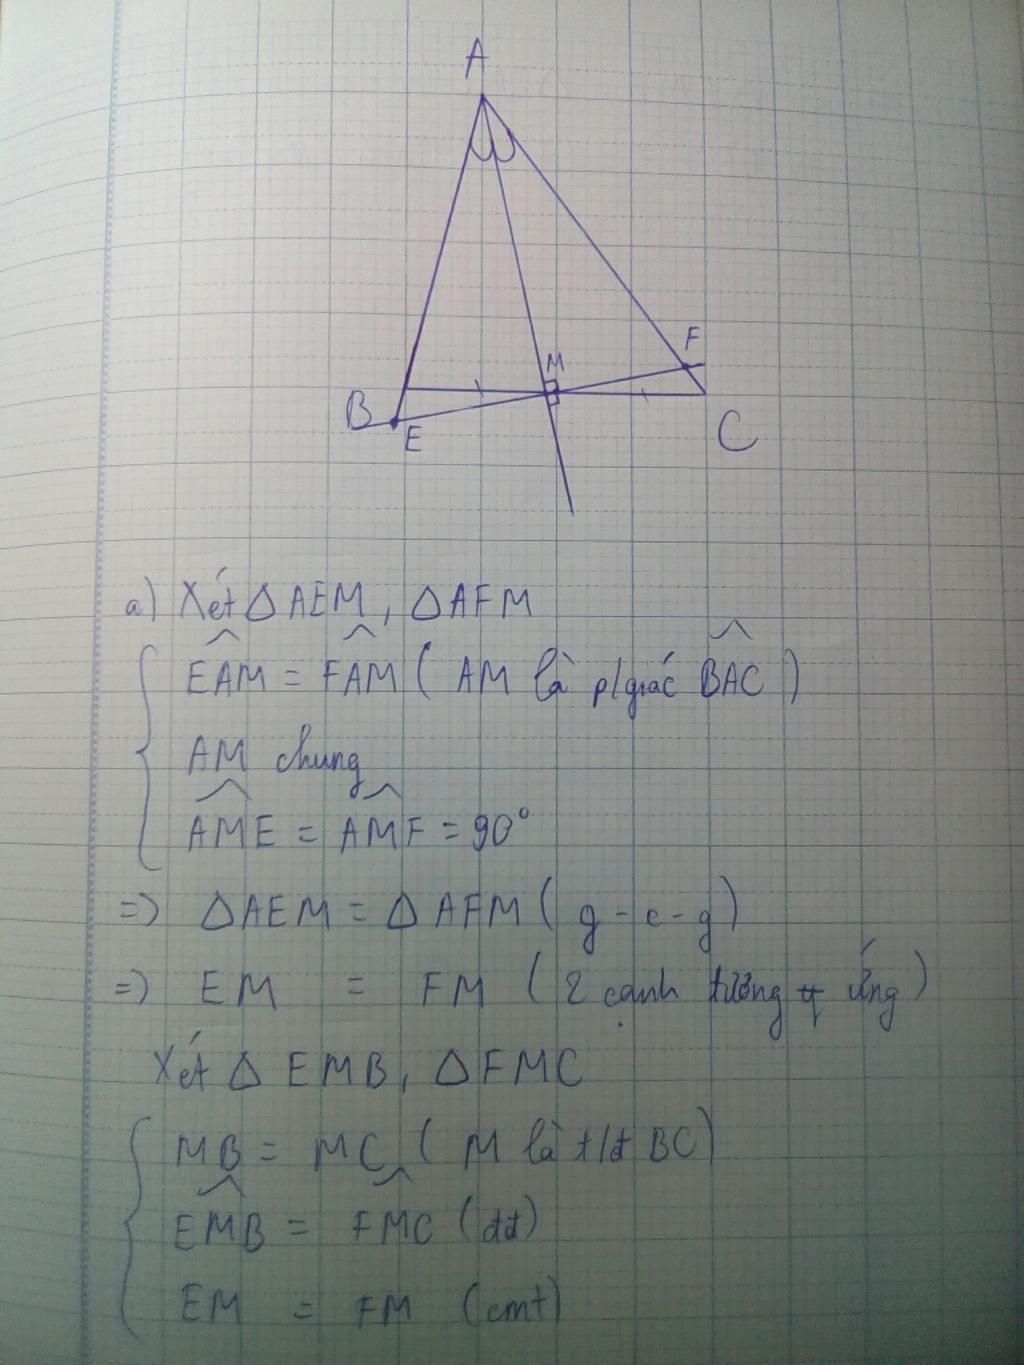 A
F
M
B
E
C
a) Xét △AEM, △AFM
EÂM = FÂM (AM là p/giác BÂC)
AM chung
AM̂E = AM̂F = 90°
=> △AEM = △AFM (g-c-g)
=> EM = FM (2 cạnh tương ứng)
Xét △EMB, △FMC
MB = MC (M là t/đ BC)
EM̂B = FM̂C (đđ)
EM = FM (cmt)